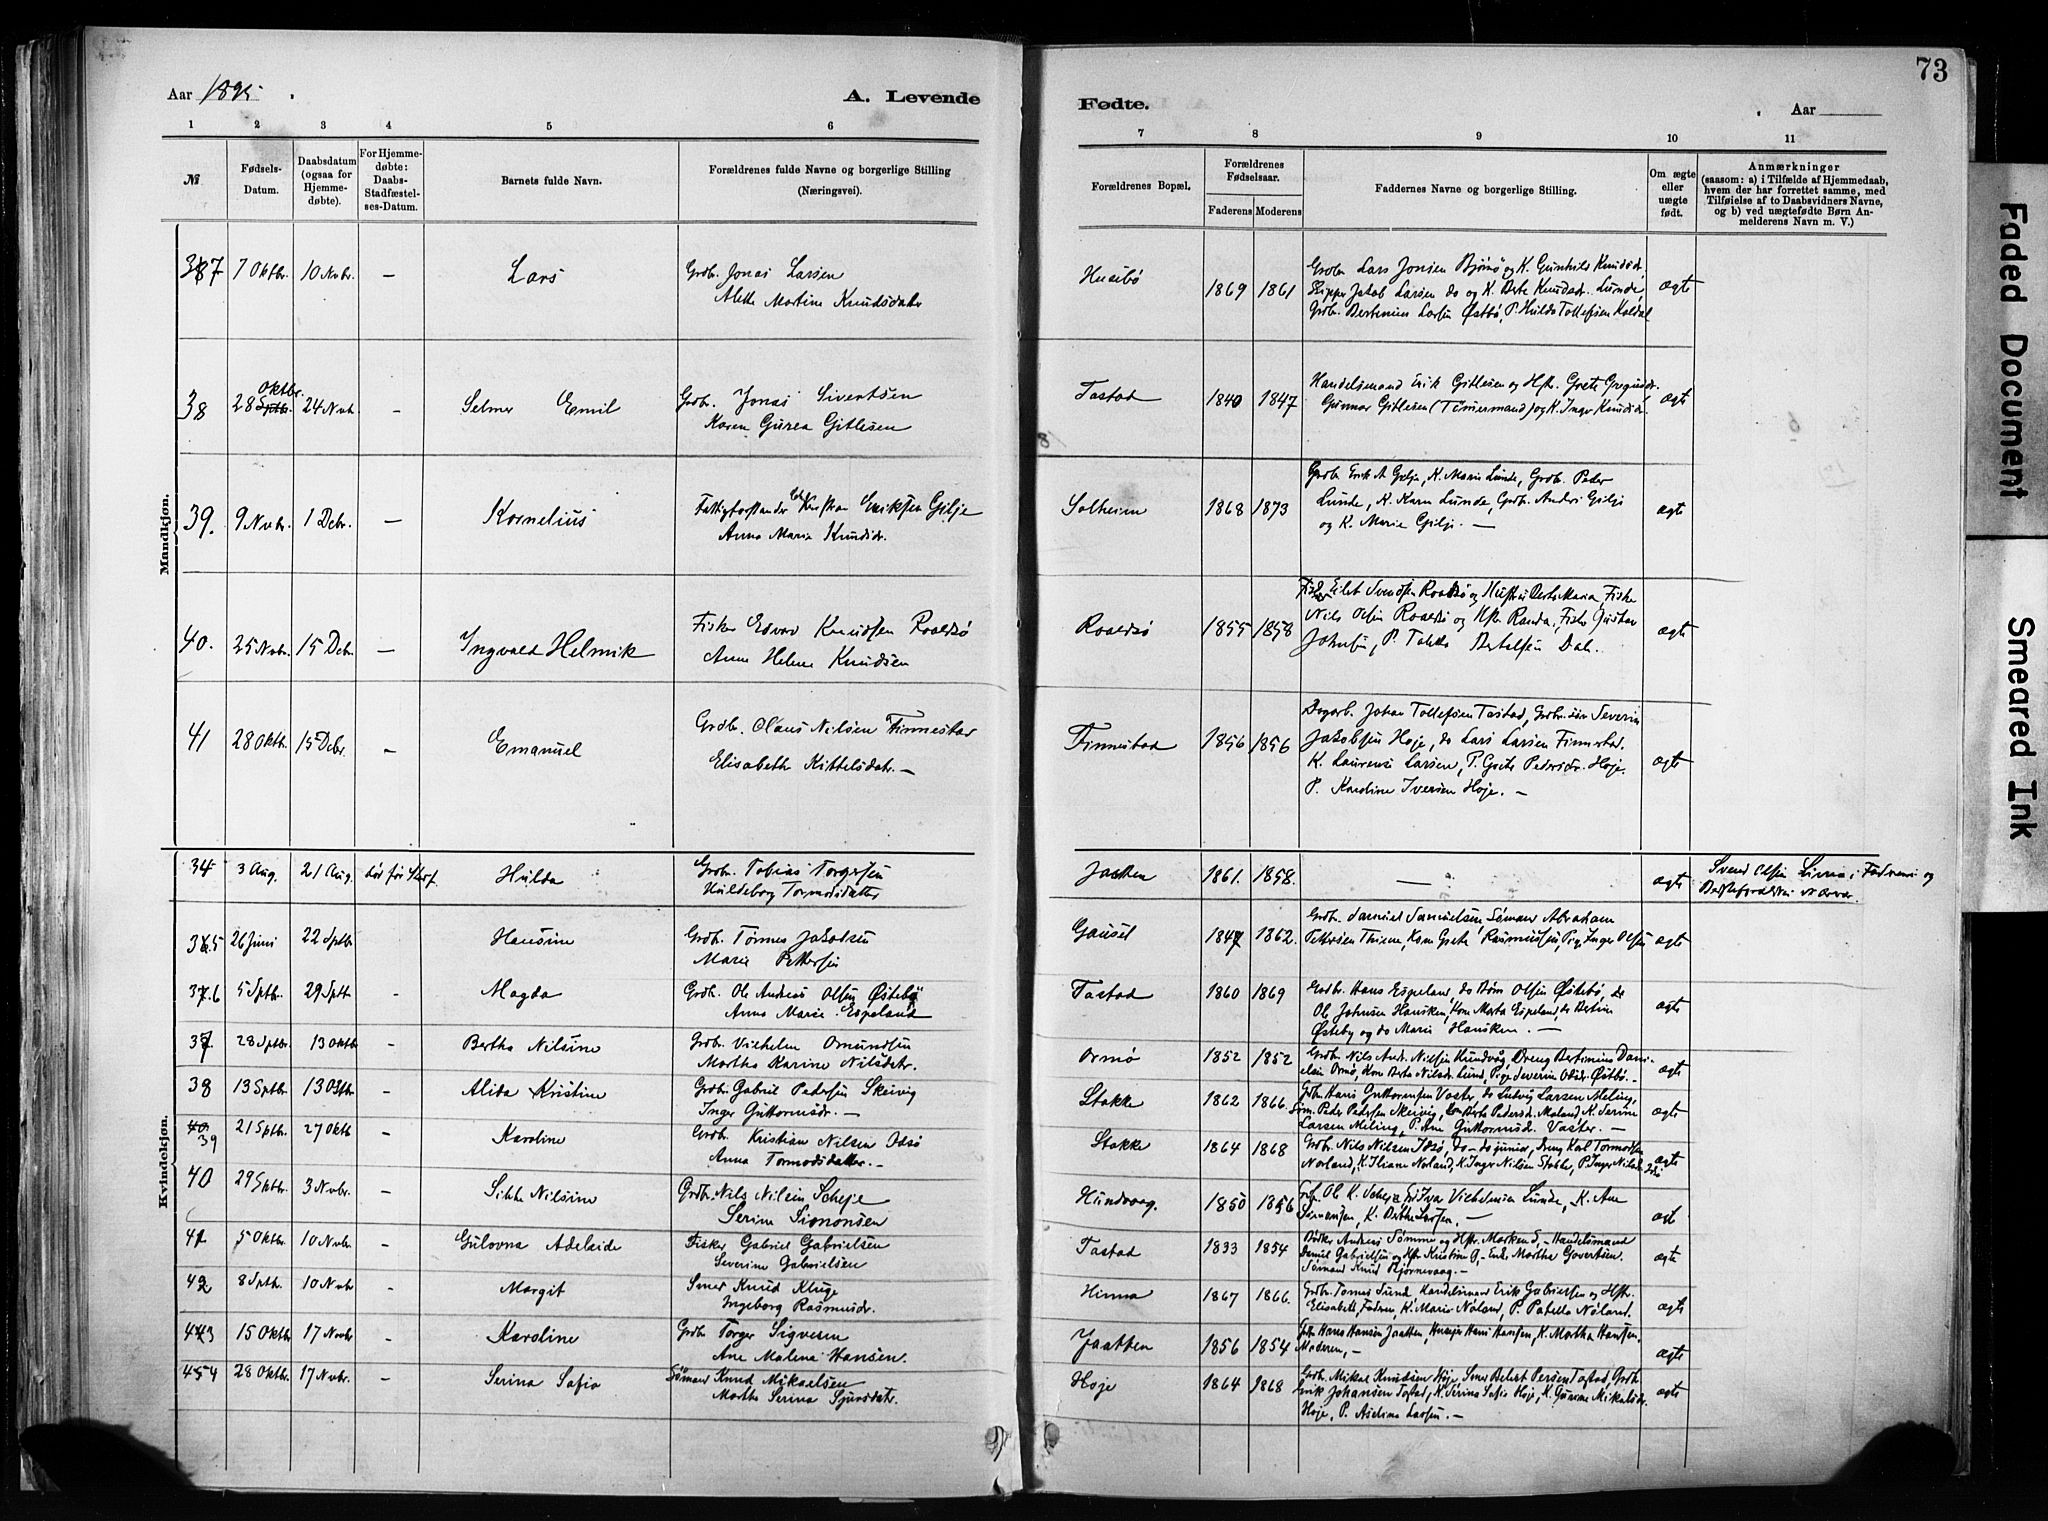 73
Aar 1895.
A. Levende
Fødte.
Aar
1 2 3 4 5 6 7 8 9 10 11
№
Fødsels-
Datum.
Daabsdatum
(ogsaa for
Hjemme-
døbte).
For Hjemme-
døbte:
Daabs-
Stadfæstel-
ses-Datum.
Barnets fulde Navn.
Forældrenes fulde Navne og borgerlige Stilling
(Næringsvei).
Forældrenes Bopæl.
Forældrenes
Fødselsaar.
Faderens Moderens
Faddernes Navne og borgerlige Stilling.
Om ægte
eller
uægte
født.
Anmærkninger
(saasom: a) i Tilfælde af Hjemmedaab,
hvem der har forrettet samme, med
Tilføielse af to Daabsvidners Navne,
og b) ved uægtefødte Børn An-
melderens Navn m. V.)
Mandkjøn.
37 7 Oktbr. 10 Nvbr. – Lars Grdb. Jonas Larsen
Martine Knudsdatr
Husebø 1869 1861 Grdbr Lars Jonsen Bjørnø og K. Gunhild Knudsdr.
Skipper Jakob Larsen do og K. Berte Knudsdr. Lunde,
Grdb. Bertinius Larsen Østbø, P. Hulda Tollefsen Koldal
ægte
38 28 Oktbr. 24 Nvbr. – Selmer Emil Grdb. Jonas Sivertsen
Karen Gurea Gitlesen
Tastad 1840 1847 Handelsmand Erik Gitlesen og Hstr. Grete Gregusdr.
Gunnar Gitlesen (Tømermand) og K. Inger Knudsdr.
ægte
39. 9 Nvbr. 1 Dcbr. – Kornelius Fattigforstander Eriksen Gilje
Anna Maria Knudsdr.
Solheim 1868 1873 Grdb. Erik A Gilje, K. Marie Lunde, Grdb. Peder
Lunde, K. Karen Lunde, Grdb. Andrs Gilje
og K. Marie Gilje. –
ægte
40. 25 Nvbr. 15 Dcbr. – Ingvald Helmik Fisker Edvard Knudsen Roaldsø
Anne Helene Knudsen
Roaldsø 1855 1858 Fisker Eilert Svendsen Roaldsø og Hustru Berte Maria, Fisker
Nils Olsen Roaldsø og Hstr. Randa, Fisker Gustav
Johnsen, P. Bertelsen Dale.
ægte
41 28 Oktbr. 15 Dcbr. – Emanuel Grdb. Olaus Nilsen Finnestad
Elisabeth Kittelsdatr. –
Finnestad 1856 1856 Dagarb. Johan Tollefsen Tastad, Grdbr.søn Severin
Jakobsen Høje, do Lars Larsen Finnestad.
K. Laurense Larsen, P. Grete Pedersdr. Høje.
P. Karoline Iversen Høje. –
ægte
Kvindekjøn.
34 3 Aug. 21 Aug. død før Hulda Grdb. Tobias Torgersen
Huldeborg Tormodsdatter
Jaatten 1861. 1858. – ægte Svend Olsen i Faderens og
Bedsteforældrenes Nærvær.
35 26 Juni 22 Sptbr. Hansine Grdb. Tønnes Jakobsen
Marie Pettersen
Gausel 1847 1862. Grdb. Samuel Samuelsen, Sømand Abraham
Pettersen Thime, Kone Grete Rasmussen, Pig. Inge Olsen
ægte
36 5 Sptbr. 29 Sptb – Magda Grdb. Ole Andreas Olsen Østebø
Anna Marie Espeland
Tastad 1860 1869 Grdbr. Hans Espeland, do Olsen Østebø, do
Ole Johnsen Hansken, Kone Marta Espeland, do Bertine
Østeby og do Marie Hansken. –
ægte
37 28 Sptbr. 13 Oktb – Bertha Nilsine Grdb. Vilhelm Omundsen
Martha Karine Nilsdatr.
Ormø 1852 1852 Grdb. Nils Andr. Nilsen Hundvåg, Dreng Bertinius Dani-
elsen Ormø, Kone Berta Nilsdr. Lund, Pige Severine Østbø. –
ægte
38 13 Sptbr. 13 Oktb – Alida Kristine Grdb. Gabriel Pedersen Skeivig
Inger Guttormsdr. –
Stokke 1862 1866. Grdb. Hans Guttormsen Vaster, do Ludvig Larsen Meling,
Søm. Peder Pedersen Skeivig, Kone Berta Pedersdr. K. Serine
Larsen Meling, P. Ane Guttormsdr. Vaster. –
ægte
39 21 Sptbr. 27 Oktb – Karoline Grdb. Kristian Nilsen Odsø
Anna Tormodsdatter. –
Stokke 1864 1868 Grdb. Nils Nilsen Idsø, do – do junior, Dreng Karl Tormodsen
Norland, K. Eliane Norland, K. Inger Nilsen Stokke, P. Inger
ægte
40 29 Sptbr. 3 Nvbr. – Sikke Nilsine Grdb. Nils Nilsen Scheje
Serine Simonsen
Hundvaag. 1850 1856 Ole K. Scheje, Vilhelmsen Lunde, K. Ane
Simonsen, K. Berthe Larsen. –
ægt
41 5 Oktbr. 10 Nvbr. – Gulovna Adelaide Fisker Gabriel Gabrielsen
Severine Gabrielsen
Tastad 1833 1854 Bødker Andreas Sømme og Hstr. Marken S, – Handelsmand
Daniel Gabrielsen og Hstr Kristine G, – Enke Martha Govertsen.
Sømand Knud Bjørnevaag. –
ægte
42 8 Sptbr. 10 Nvbr – Margit Smed Knud Kluge
Ingeborg Rasmusdr.
Hinna 1867 1866. Grdb. Tønnes Sunde Handelsmand Erik Gabrielsen og Hstr.
Elisabeth, Faderen, K. Marie Nøland, P. Nøland.
ægte
43 15 Oktbr 17 Nvbr – Karoline Grdb Torger Sigversen
Ane Malene Hansen.
Jaatten 1856 1854 Grdb. Hans Hansen Jaatten, Husejer Hans Hansen, K. Martha Hansen.
Moderen. –
ægte
44 28 Oktbr. 17 Nvbr. – Serina Sofia Sømand Knud Mikaelsen
Martha Serina Sjursdatr.
Høje 1864 1868 Grdb. Mikal Knudsen Høje, Smed Bebert Persen Tastad, Grdb.
Erik Johansen Tastad, K. Serina Sofie Høje, K. Mikalsdr.
Høje, P. Aselina Larsen. –
ægte
Faded Document
Smeared Ink